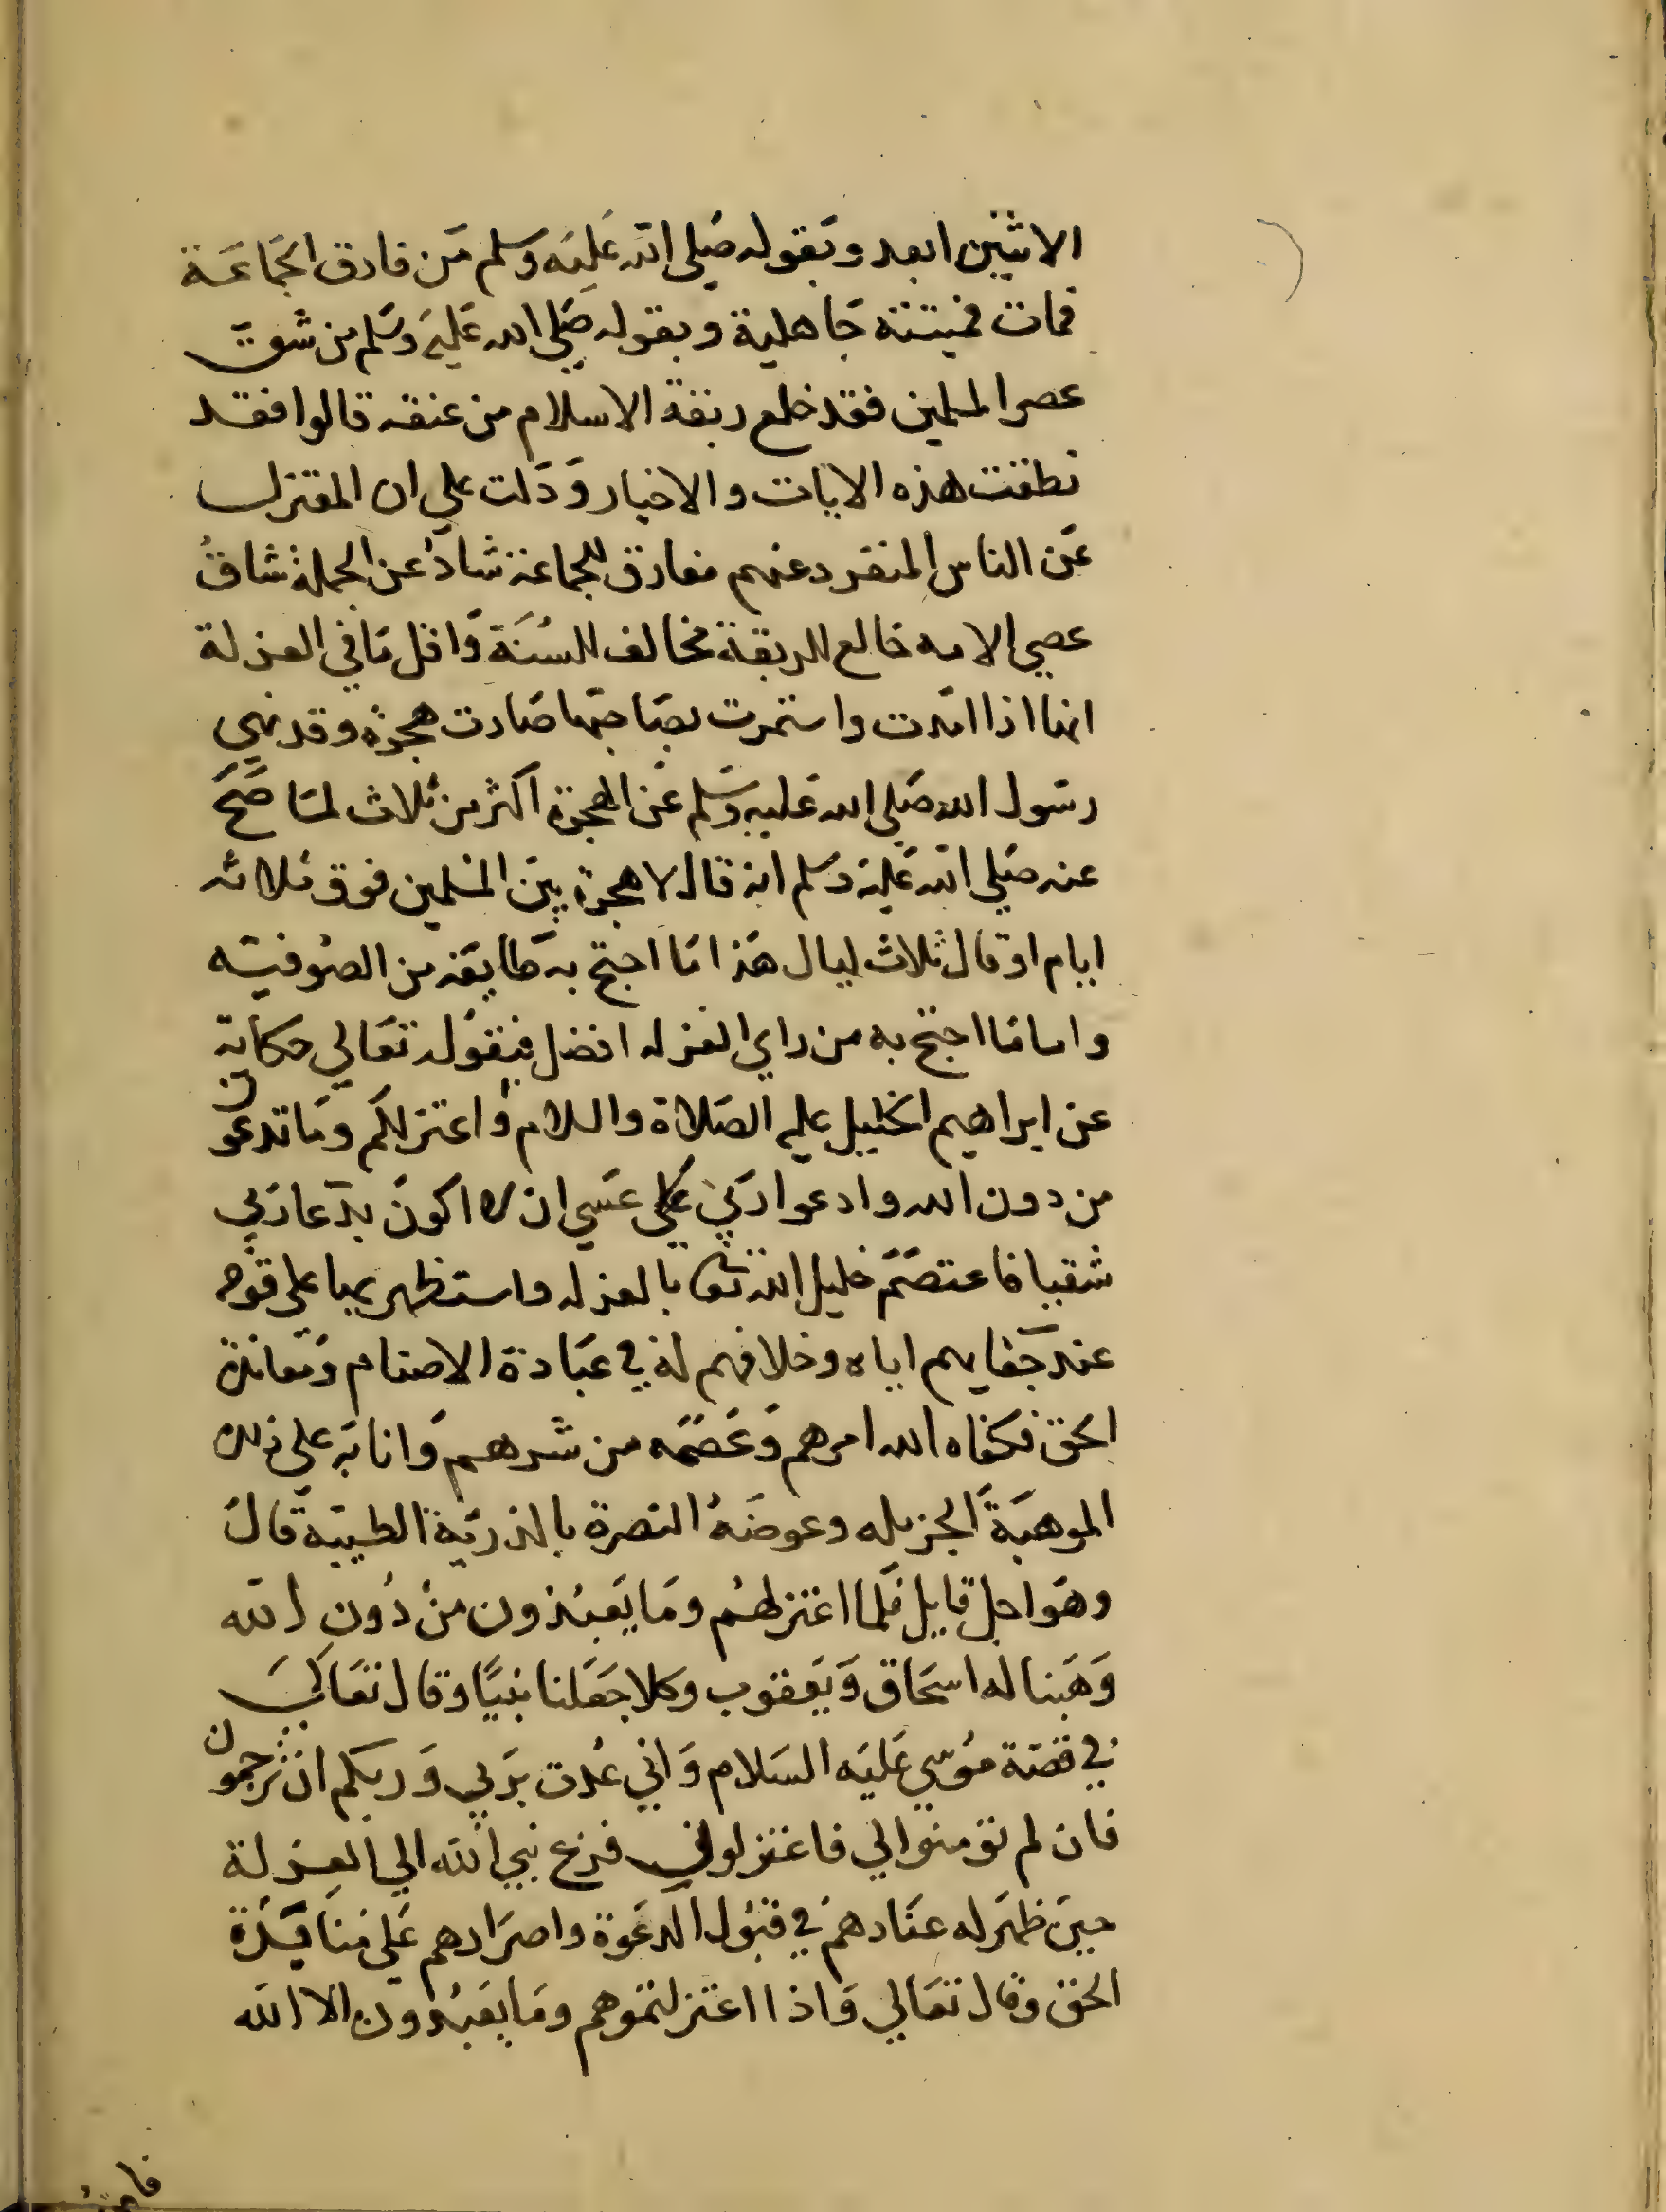 الاثنين ابعد وبقوله صلى الله عليه وسلم من فارق الجماعة
فمات فميتته جاهلية وبقوله صلي الله عليه وسلم من شق
عصر المسلمين فقد خلع ربقة الاسلام من عنقه قالوا فقد
نطقت هذه الايات والاخبار ودلت علي ان المعتزل
عن الناس المنفرد عنهم مفارق للجماعة شاذ عن الجملة شاق
عصي الامه خالع للربقة مخالف للسنة واقل ما في العزلة
انها اذا امتدت واستمرت بصاحبها صارت هجرة وقد نهي
رسول الله صلي الله عليه وسلم عن الهجرة اكثر من ثلاث لما صح
عنه صلي الله عليه وسلم انه قال لا هجرة بين المسلمين فوق ثلاثه
ايام او قال ثلاث ليال هذا ما احتج به طايفة من الصوفيه
واما ما احتج به من راي العزله افضل فبقوله تعالي حكاية
عن ابراهيم الخليل عليه الصلاة والسلام واعتزلكم وما تدعون
من دون الله وادعوا ربي عسي ان لا اكون بدعا ربي
شقيا فاعتصم خليل الله تعا بالعزله واستظهر بها علي قومه
عند جفايهم اياه وخلافهم له في عبادة الاصنام ومعاندة
الحق فكفاه الله امرهم وعصمه من شرهم واثابه علي ذلك
الموهبة الجزيله وعوضه النصرة بالذرية الطيبة قال
وهو اجل قايل فلما اعتزلهم وما يعبدون من دون الله
وهبنا له اسحاق ويعقوب وكلا جعلنا نبيا وقال تعالي
في قصة موسي عليه السلام واني عذت بربي وربكم ان ترجمون
فان لم تومنوا لي فاعتزلوني فزع نبي الله الي العزلة
حين ظهر له عنادهم في قبول الدعوة واصرارهم علي منابذة
الحق وقال تعالي واذا اعتزلتموهم وما يعبدون الا الله